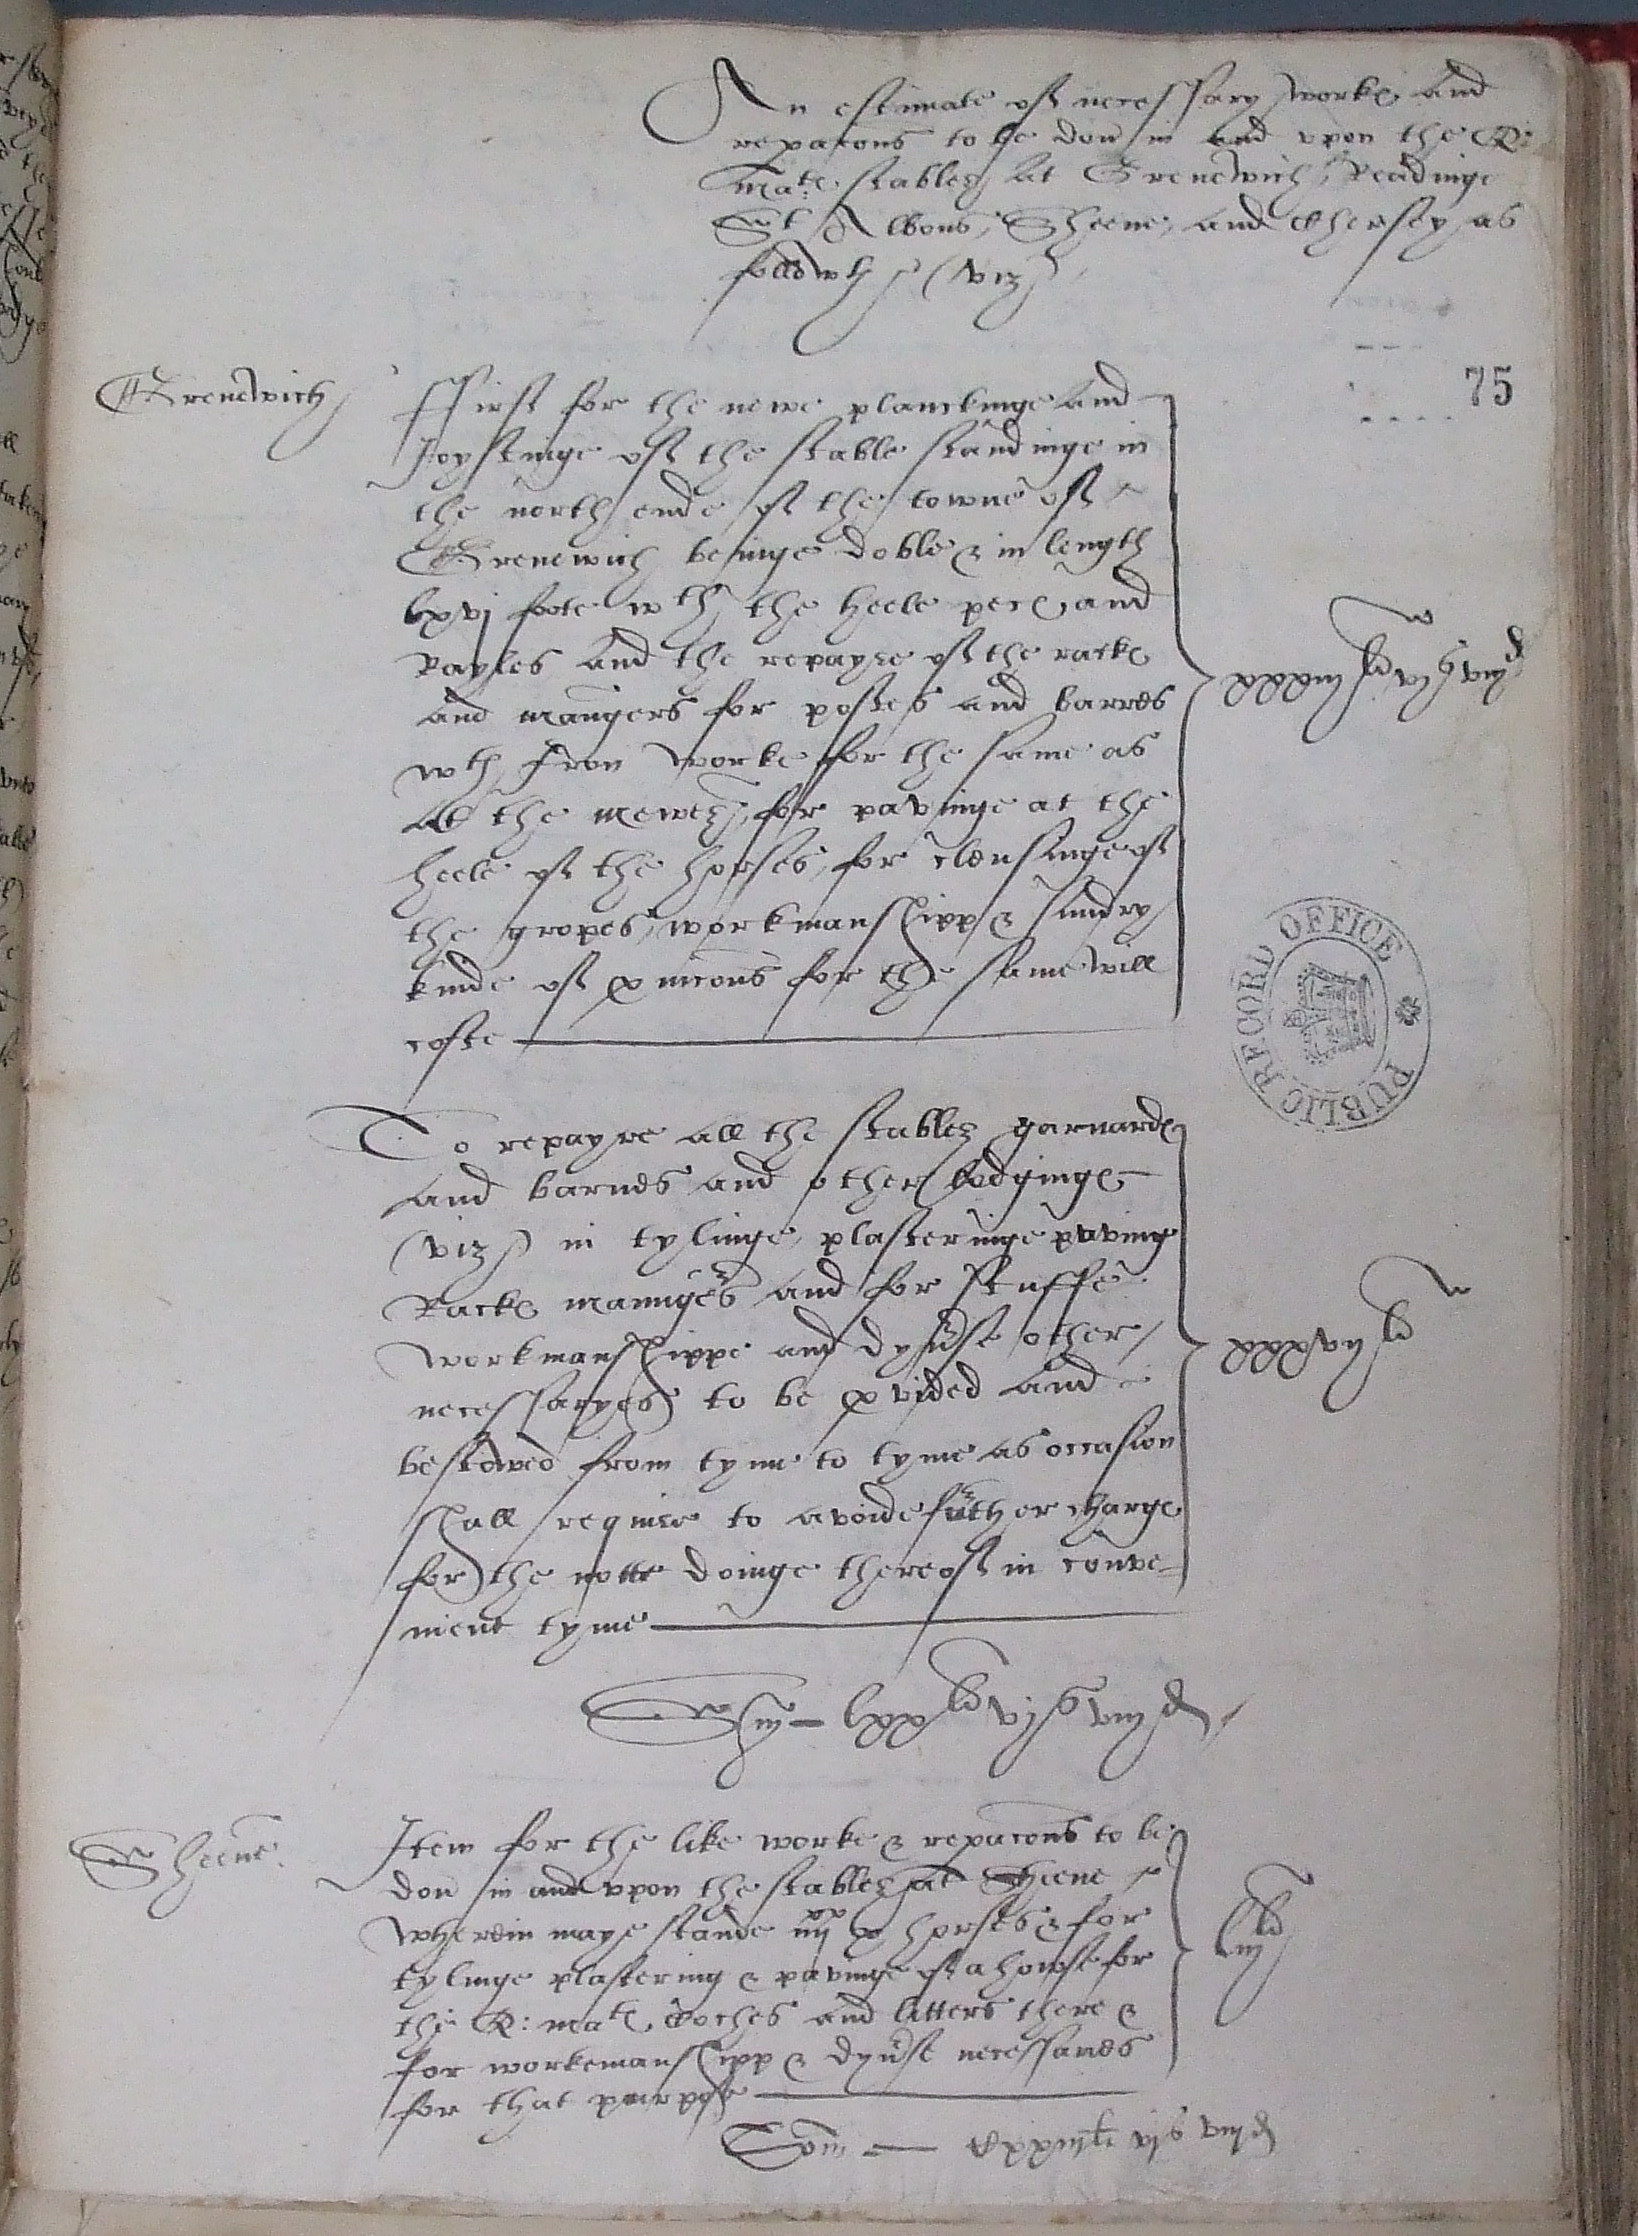 An estimate of necessary worke and
repacons to be don in and vpon the Q:
Mate stables at Grenewich, Readinge
St Albons, Sheene, and Chersey as
followth (viz)
75
Grenewich
ffirst for the newe planckinge and
Joystinge of the stable standinge in
the north ende of the towne of
Grenewich beinge doble & in length
lxvj foote wth the heele pece and
Rayles and the repayre of the racke
and maungers for postes and barres
wth Iron worke for the same as
at the mewes, for pavinge at the
heele of the horses, for clensinge of
the gropes, workmanshipp & sundry
kinde of pvicons for the same will
coste
xxxiij li vj s viij d
PUBLIC RECORD OFFICE
To repayre all the stables garnarde
and barnes and other lodginge
(viz) in tylinge, plasteringe paving
Racke maungers and for stuffe
workmanshippe and dyuerse other
necessaryes to be pvided and
bestowed from tyme to tyme as occasion
shall require to avoide further charge
for the notte doinge thereof in conve=
nient tyme
xxxvij li
Sm lxx li vj s viij d
Sheene
Item for the like worke & repacons to be
don in and vpon the stables at Sheene
wherein maye stande iiij xx x horses & for
tylinge plastering & pavinge of a howse for
the Q: mate Coches and litters there &
for workemanshipp & dyuerse necessaries
for that purpose
liij li
Som Cxxiij li vj s viij d